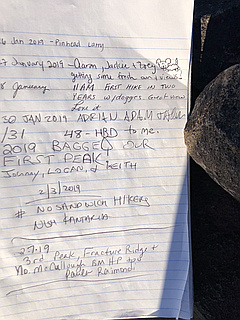 Jan 2019 - Pinhead Larry
January 2019 - Aaron, Jackie & Trey
getting some fresh air & views!
January 11AM FIRST HIKE IN TWO
YEARS w/doggos Great view
Love it
30 JAN 2019 ADRIAN ADAM
1/31 48 - HBD to me.
2019 BAGGED OUR
FIRST PEAK!
Johnny, LOGAN, & KEITH
2/3/2019
# NO SANDWICH HIKERS
2-7-19
3rd Peak, Fracture Ridge &
No. McCullough BM HP +pt
Raimondi